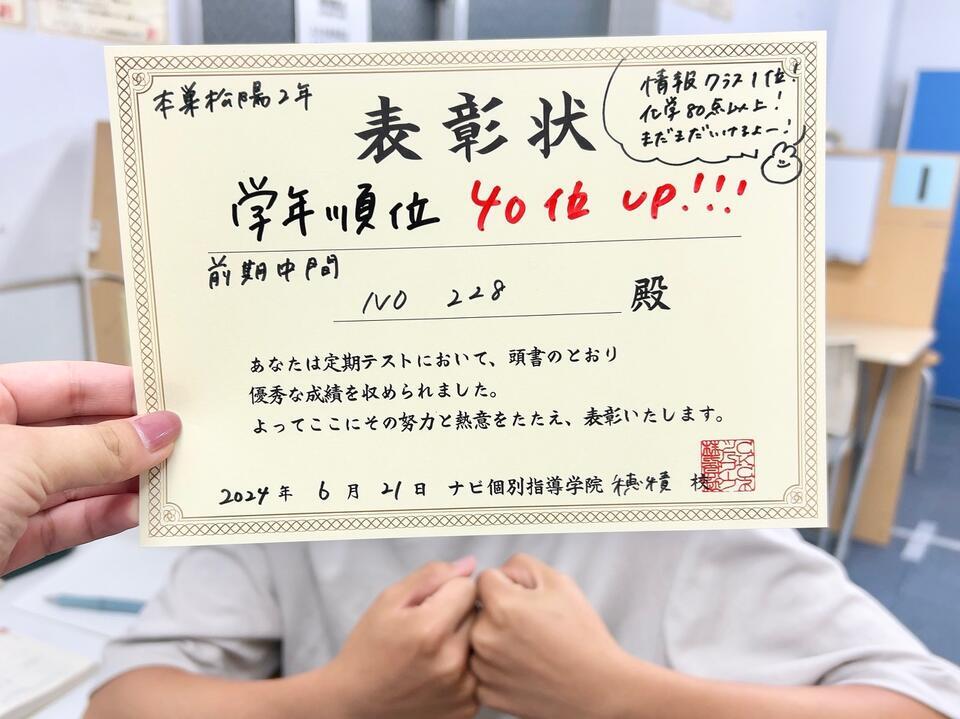 本巣松陽2年
表彰状
情報クラス1位、
化学80点以上!
まだまだいけるよー!
学年順位 40位 UP!!!
前期中間
NO 228 殿
あなたは定期テストにおいて、頭書のとおり
優秀な成績を収められました。
よってここにその努力と熱意をたたえ、表彰いたします。
2024年 6月 21日 ナビ個別指導学院 穂積 校
1